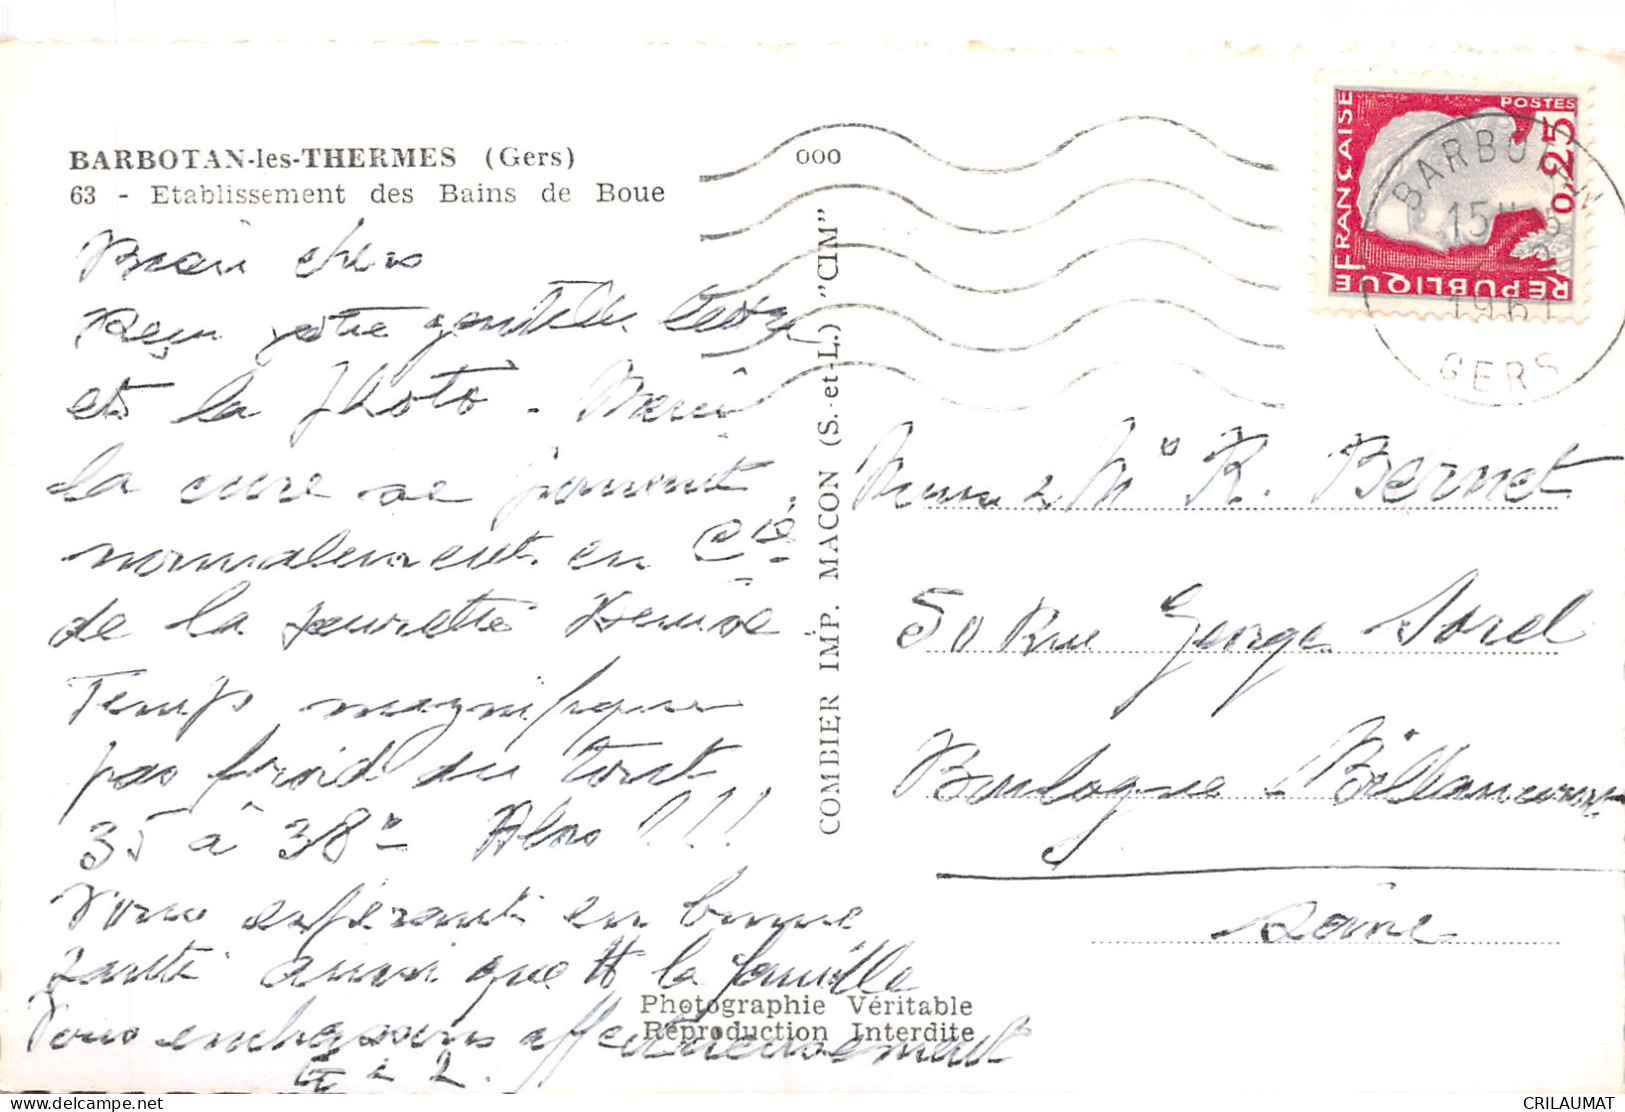 BARBOTAN-les-THERMES (Gers)
63 - Etablissement des Bains de Boue
Bien chers
Reçu votre gentille lettre
et la photo - Merci
la cure se poursuit
normalement en Cie
de la sœurette Denise
Temps magnifique
pas froid du tout
35 à 38° - Alors !!!
Vous espérant en bonne
santé ainsi que tte la famille
Vous embrassons affectueusement
à 2.
COMBIER IMP. MACON (S.-et-L.) "CIM"
Photographie Véritable
Reproduction Interdite
000
POSTES
0,25
REPUBLIQUE FRANÇAISE
BARBOTAN
15 H
1961
GERS
R. Bernet
50 Rue George Sorel
Boulogne - Billancourt
Seine
CRILAUMAT